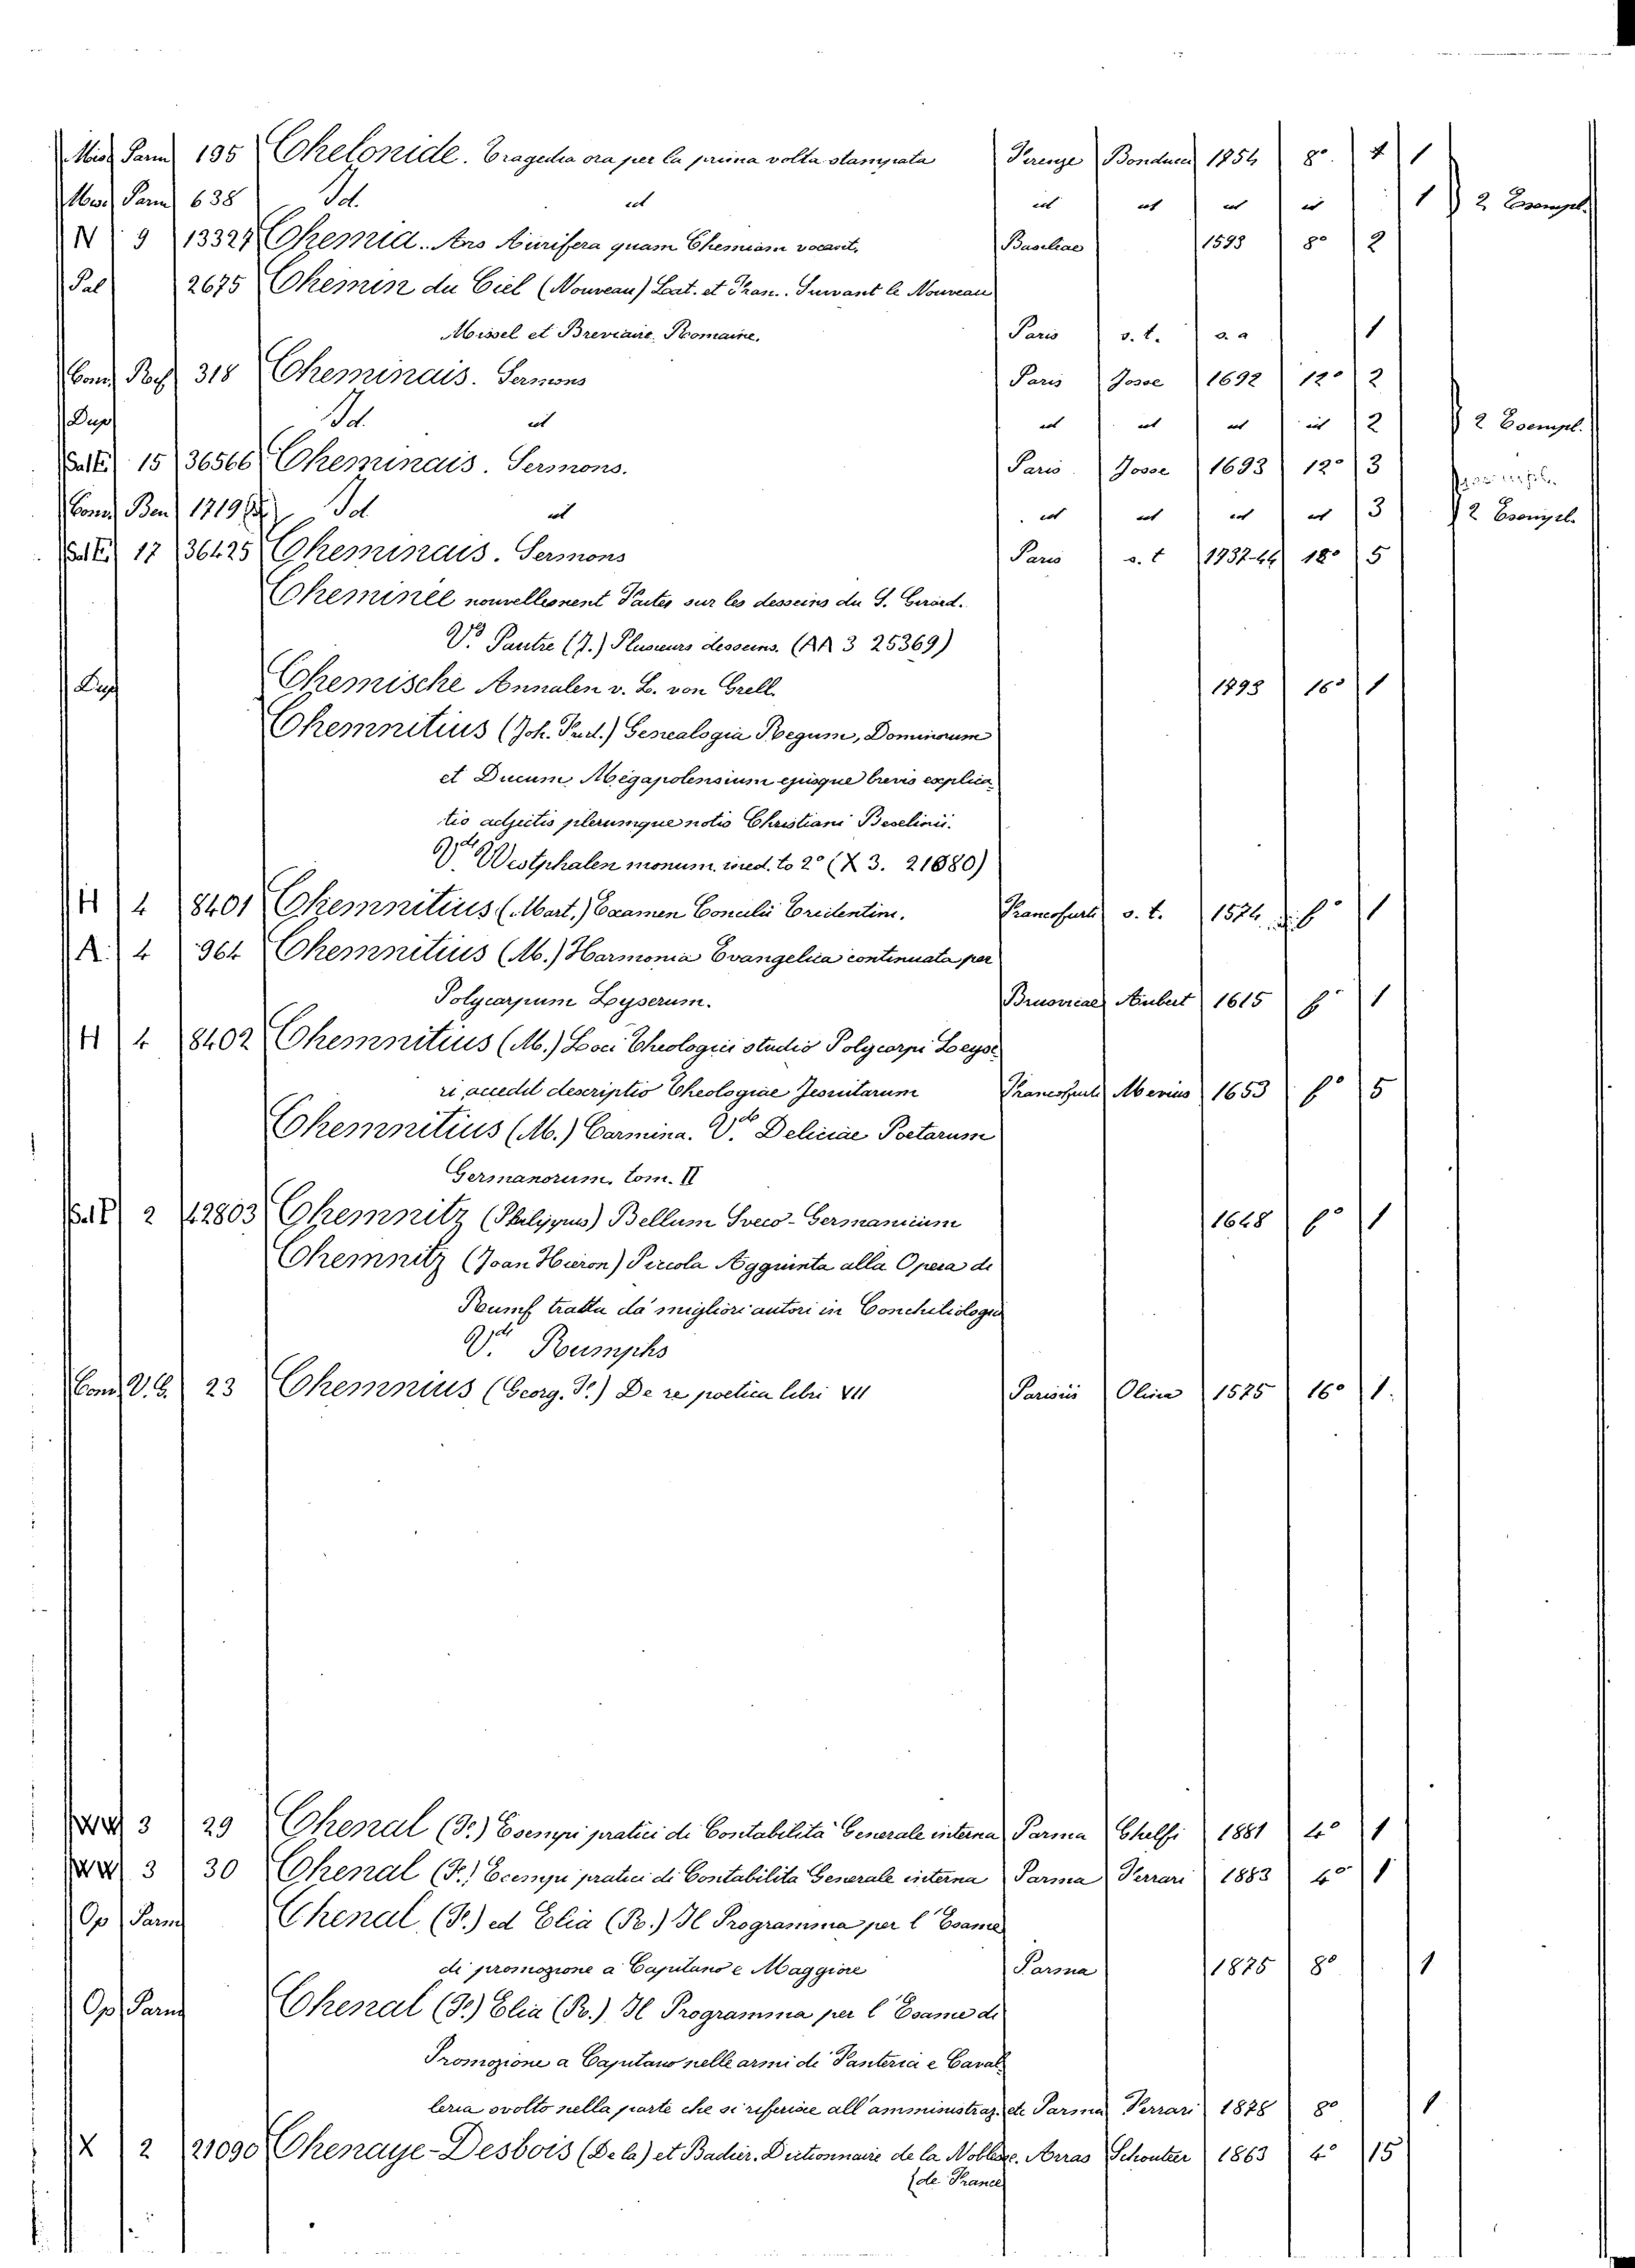 Misc Parm 195 Chelonide. Tragedia ora per la prima volta stampata Firenze Bonducci 1754 8º. 1
Misc Parm 638 Id. id id id id id 1 2 Esempl.
N 9 13327 Chemia. Ars Aurifera quam Chemiam vocant. Basileae 1593 8º 2
Pal 2675 Chemin du Ciel (Nouveau) Lat. et Fran.. Suivant le Nouveau
Missel et Breviaire Romaine. Paris s. t. s. a 1
318 Cheminais. Sermons Paris Josse 1692 12º 2
Dup Id. id id id id id 2 2 Esempl.
15 36566 Cheminais. Sermons. Paris. Josse 1693 12º 3
Ben 1719 Id id id id id id 3 2 Esempl.
17 36425 Cheminais. Sermons Paris s. t 1737-44 18º 5
Cheminèe nouvellement Faites sur les desseins du S. Gerard.
Vº. Pautre (J.) Plusieurs desseins. (AA 3 25369)
Dup Chemische Annalen v. L. von Crell. 1793 16º 1
Chemnitius (Joh. Frid.) Genealogia Regum, Dominorum
et Ducum Megapolensium ejusque brevis explica
tio adjectis plerumque notis Christiani Beselinii.
Vde Westphalen monum. ined. to 2º (X 3. 21880)
H 4 8401 Chemnitius (Mart.) Examen Concilii Tridentini. Francofurti s. t. 1574 1
A. 4 964 Chemnitius (M.) Harmonia Evangelica continuata per
Polycarpum Lyserum. Aubert 1615 fº 1
H 4 8402 Chemnitius (M.) Loci Theologici studio Polycarpi Leyse
ri accedit descriptio Theologiae Jesuitarum Francofurti Mevius 1653 fº 5
Chemnitius (M.) Carmina. Vde Deliciae Poetarum
Germanorum. tom. II
2 12803 Chemnitz (Philippus) Bellum Sveco-Germanicum 1648 fº 1
Chemnitz (Joan Hieron) Piccola Aggiunta alla Opera di
Rumf tratta da migliori autori in Conchiliologia
Vde Rumphs
V. B. 23 Chemnius (Georg. F.) De re poetica libri VII Parisiis Oliva 1575 16º 1.
3 29 Chenal (F.) Esempi pratici di Contabilità Generale interna Parma Ghelfi 1881 4º 1
3 30 Chenal (F.) Ecempi pratici di Contabilita Generale interna Parma Ferrari 1883 4º 1
Op Parm Chenal (F.) ed Elia (R.) Il Programma per l'Esame
di promozione a Capitano e Maggiore Parma 1875 8º 1
Op Parm Chenal (F.) Elia (R.) Il Programma per l'Esame di
Promozione a Capitano nelle armi di Fanteria e Caval
leria svolto nella parte che si riferisce all'amministraz. etc Parma Ferrari 1878 8º 1
X 2 21090 Chenaye-Desbois (De la) et Badier. Dictionnaire de la Noblesse. Arras 1863 4º 15
(de France